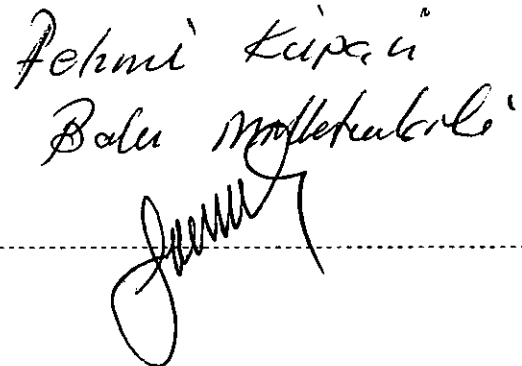 Fehmi Küpçü
Bolu Milletvekili